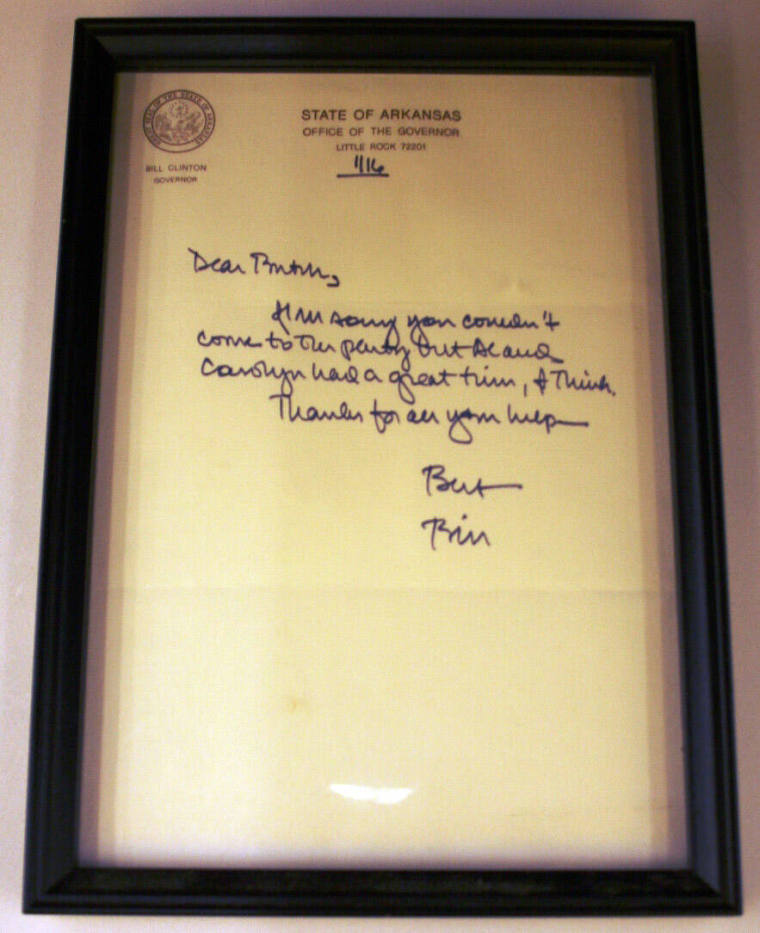 GREAT SEAL OF THE STATE OF ARKANSAS
STATE OF ARKANSAS
OFFICE OF THE GOVERNOR
LITTLE ROCK 72201
1/16
BILL CLINTON
GOVERNOR
Dear Butch,
I'm sorry you couldn't
come to the party but Al and
Carolyn had a great time, I think.
Thanks for all your help—
Best
Bill